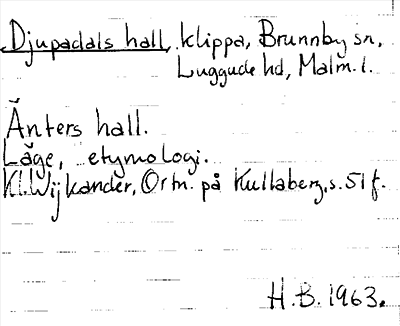 Djupadals hall, klippa, Brunnby sn,
Luggude hd, Malm. l.
Änters hall.
Läge, etymologi.
Kl. Wijkander, Ortn. på Kullaberg, s. 51 f.
H.B. 1963.